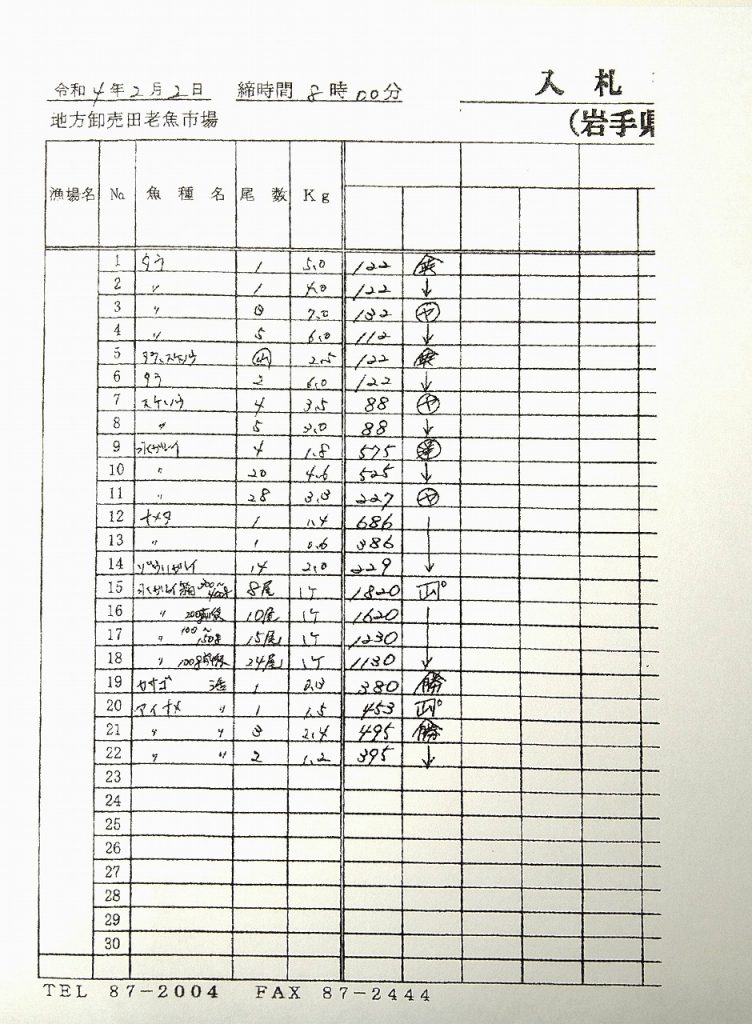 令和 4 年 2 月 2 日 締時間 8 時 00 分 入札
地方卸売田老魚市場 (岩手県
漁場名 № 魚種名 尾数 Kg
1 タラ 1 5.0 122
2 〃 1 4.0 122 ↓
3 〃 7.0 132 ㋳
4 〃 5 6.0 112 ↓
5 タラ、スケソウ ㊤ 2.5 122
6 タラ 2 6.0 122 ↓
7 スケソウ 4 3.5 88 ㋳
8 〃 5 3.0 88 ↓
9 水ガレイ 4 1.8 575
10 〃 20 4.6 525 ↓
11 〃 28 3.3 227 ㋳
12 ナメタ 1 1.4 686
13 〃 1 0.6 386
14 14 2.0 229 ↓
15 水ガレイ 8尾 1ケ 1820
16 〃 200g前後 10尾 1ケ 1620
17 〃 100～150g 15尾 1ケ 1230
18 〃 100g前後 24尾 1ケ 1130 ↓
19 カサゴ 活 1 0.3 380 勝
20 アイナメ 〃 1 1.5 453
21 〃 〃 3 2.4 495 勝
22 〃 〃 2 1.2 395 ↓
23
24
25
26
27
28
29
30
TEL 87-2004 FAX 87-2444